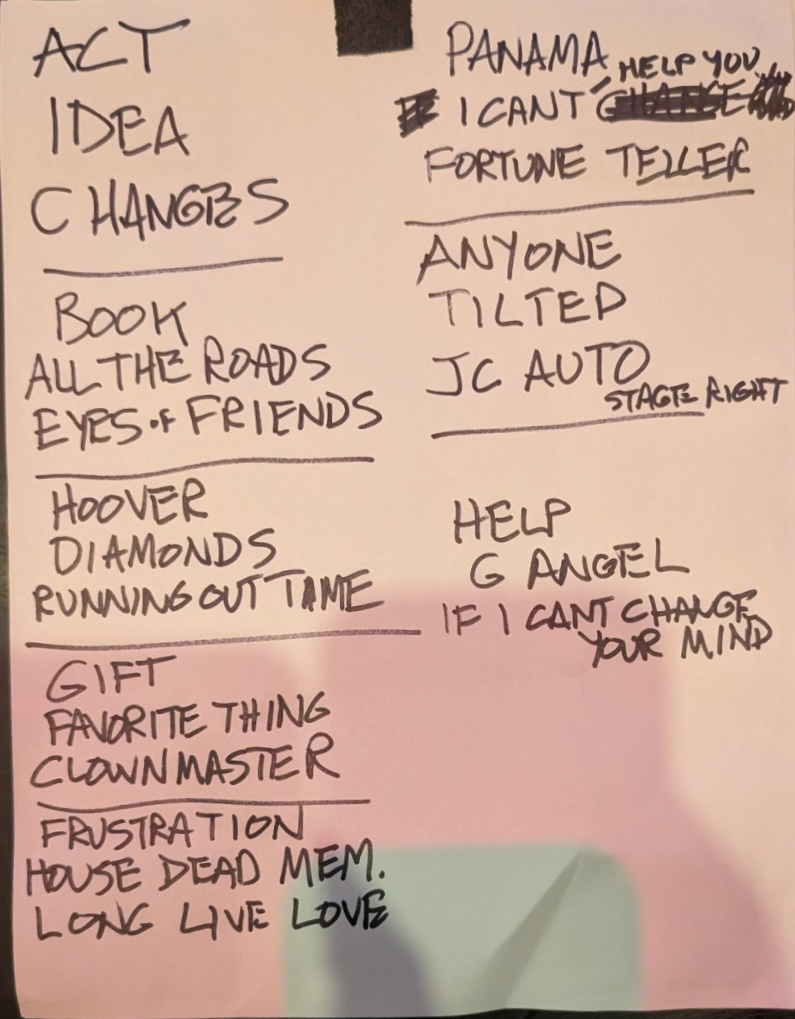 ACT
IDEA
CHANGES
BOOK
ALL THE ROADS
EYES OF FRIENDS
HOOVER
DIAMONDS
RUNNING OUT TIME
GIFT
FAVORITE THING
CLOWNMASTER
FRUSTRATION
HOUSE DEAD MEM.
LONG LIVE LOVE
PANAMA
HELP YOU
I CANT CHANGE
FORTUNE TELLER
ANYONE
TILTED
JC AUTO
STAGE RIGHT
HELP
G ANGEL
IF I CANT CHANGE
YOUR MIND